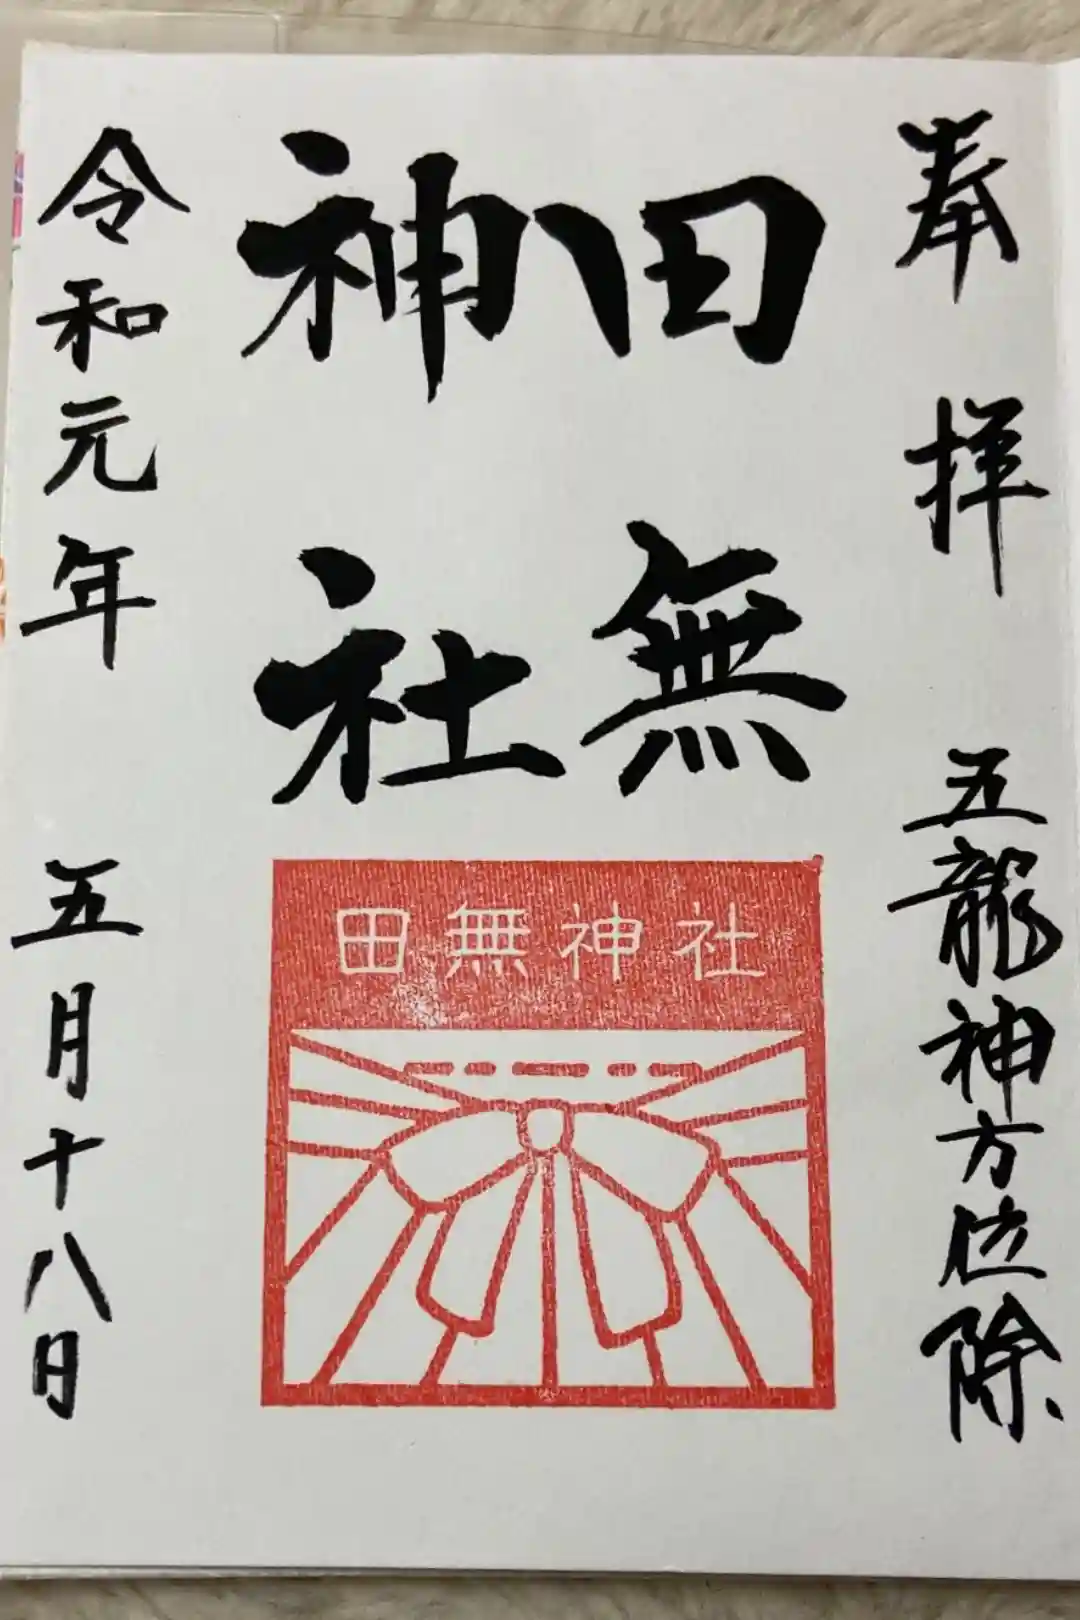 奉拝 五龍神方位除
田無
神社
田無神社
令和元年 五月十八日